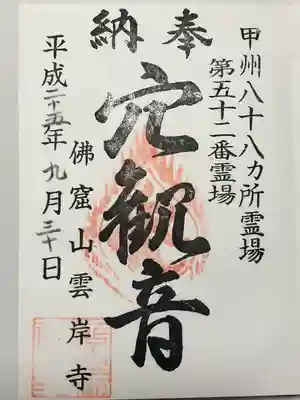 奉納
甲州八十八カ所霊場
第五十二番霊場
穴観音
平成二十五年九月三十日
佛窟山雲岸寺